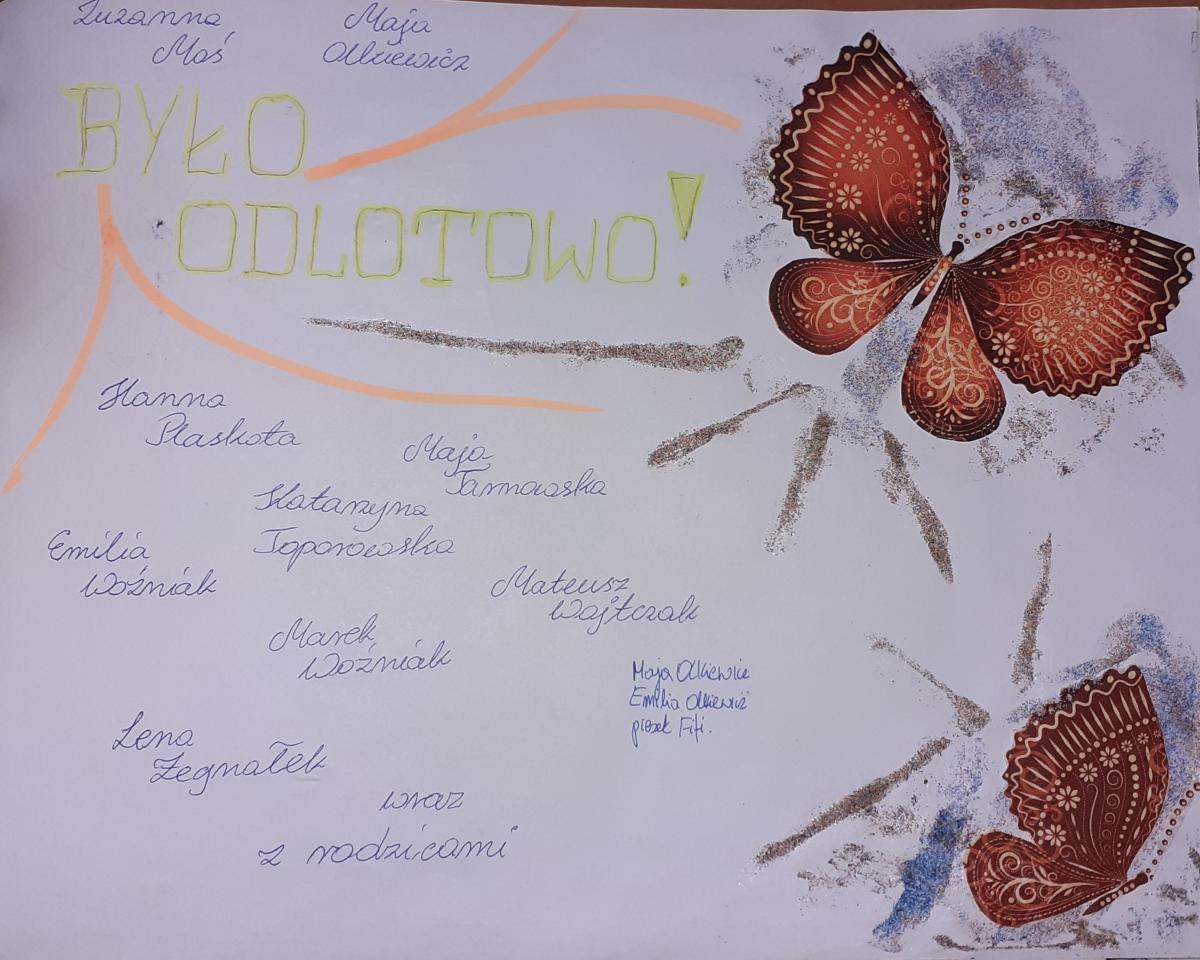 Zuzanna
Moś
Maja
Olkiewicz
BYŁO
ODLOTOWO!
Hanna
Płaskota
Maja
Tarnowska
Katarzyna
Toporowska
Emilia
Woźniak
Mateusz
Wojtczak
Marek
Woźniak
Maja Olkiewicz
Emilia Olkiewicz
piesek Fifi.
Lena
Żegnałek
wraz
z rodzicami